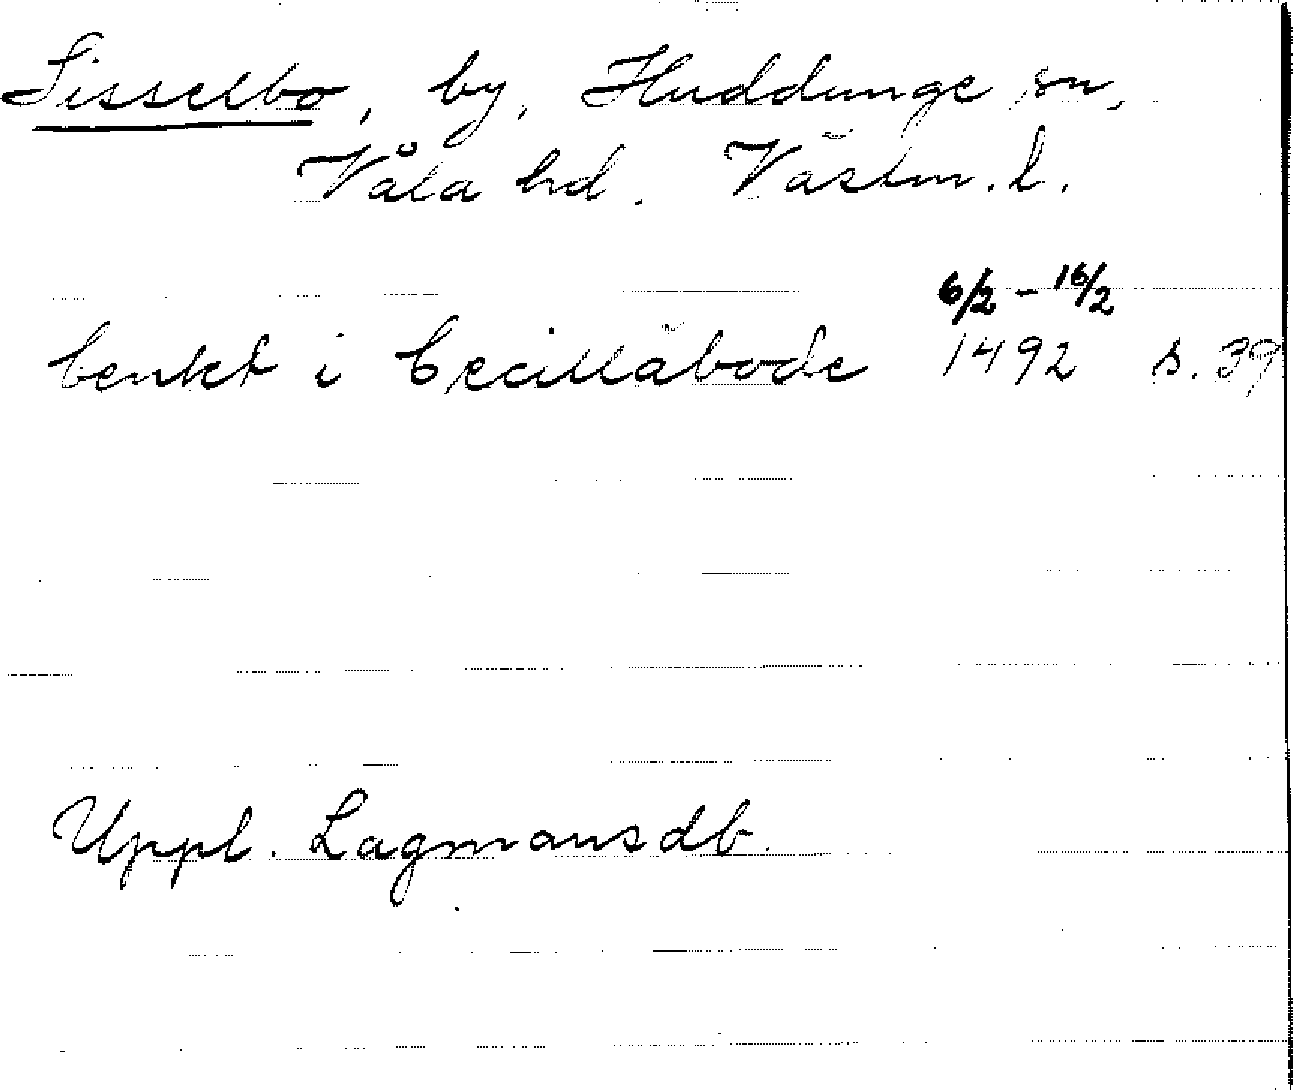 Sisselbo, by, Huddunge sn,
Våla hd. Västm. l.
6/2 – 16/2
benkt i Cecillăbode 1492 s. 39
Uppl. Lagmansdb.